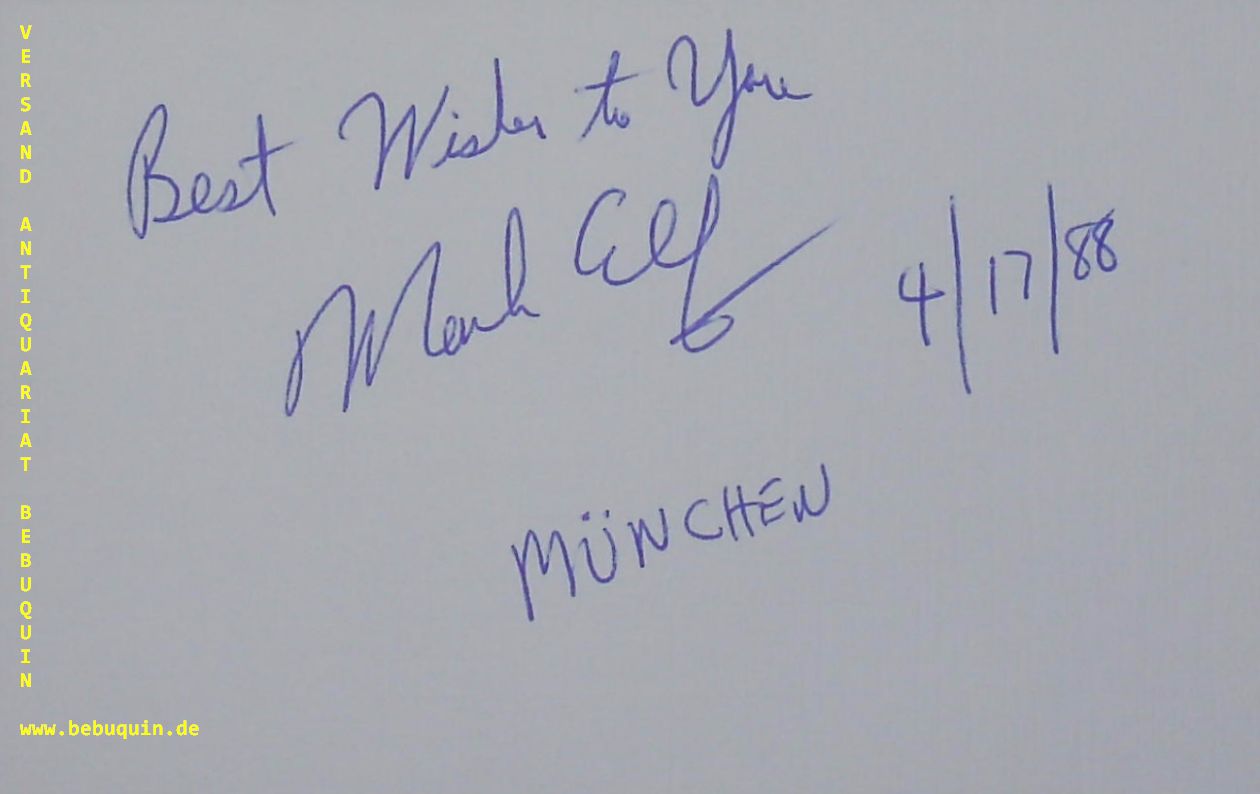 Best Wishes to You
Mark Elf
4/17/88
MÜNCHEN
VERSAND ANTIQUARIAT BEBUQUIN
www.bebuquin.de